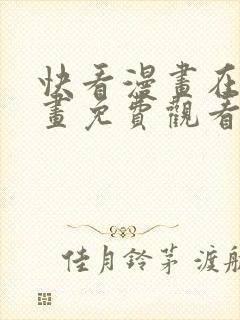 快看漫畫在
畫免費觀看
佳月鈴茅 渡航